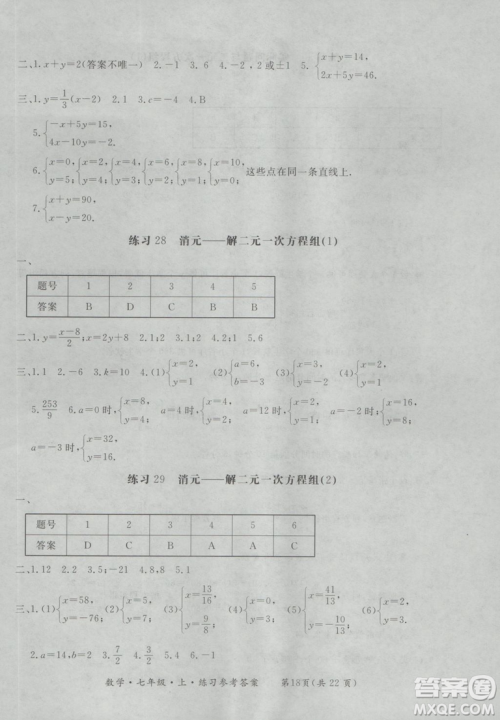 二、1. x+y=2(答案不唯一) 2. -1 3. 6 4. 1或0或±1 5. {x+y=14, 2x+5y=46.
三、1. y=1/3(x-2) 2. 1 3. c=-4 4. B
5. {-x+5y=15, 4x-10y=-2.
6. {x=0, y=5; {x=1, y=4; {x=2, y=3; {x=3, y=2; {x=4, y=1; {x=5, y=0; 这些点在同一条直线上.
7. {x+y=90, x=y+20.
练习28 消元——解二元一次方程组(1)
一、
题号 1 2 3 4 5
答案 B D A C B
二、1. y=(x-8)/2; x=2y+8 2. 1; 3. 1; 4. 1; 2 5. 6
三、1. 1 2. -6 3. k=10 4. (1){x=2, y=1 (2){a=6, b=-3 (3){x=5, y=1 (4){x=2, y=1
5. 253/9 6. a=0时,{x=8, y=4. a=4时,{x=4, y=2. a=12时,{x=2, y=1. a=-2时,{x=16, y=8.
a=-3时,{x=32, y=16.
练习29 消元——解二元一次方程组(2)
一、
题号 1 2 3 4 5 6
答案 D C D C C A
二、1. 12 2. 2 3. 5; -1 4. 8, 8 5. 1
三、1. (1){x=58, y=-76; (2){x=2, y=1; (3){x=13/16, y=9/8; (4){x=41/13, y=-11/13; (5){x=3, y=2.
2. a=14 3. 7/2 4. 3/2
数学·七年级·上·练习参考答案 第18页(共22页)